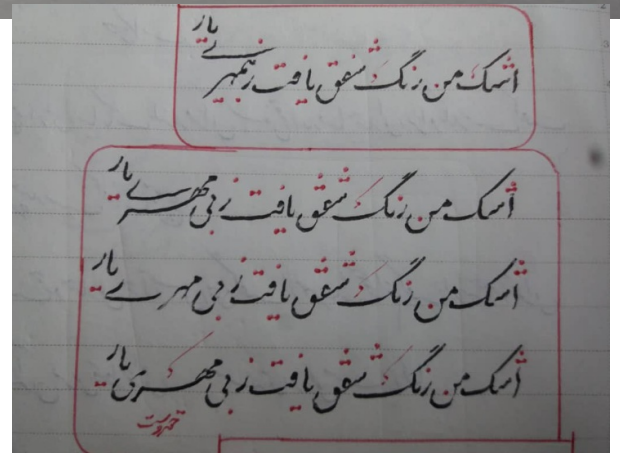 اشک من رنگ شفق یافت ز بیمهری یار
اشک من رنگ شفق یافت ز بی مهری یار
اشک من رنگ شفق یافت ز بی مهری یار
اشک من رنگ شفق یافت ز بی مهری یار